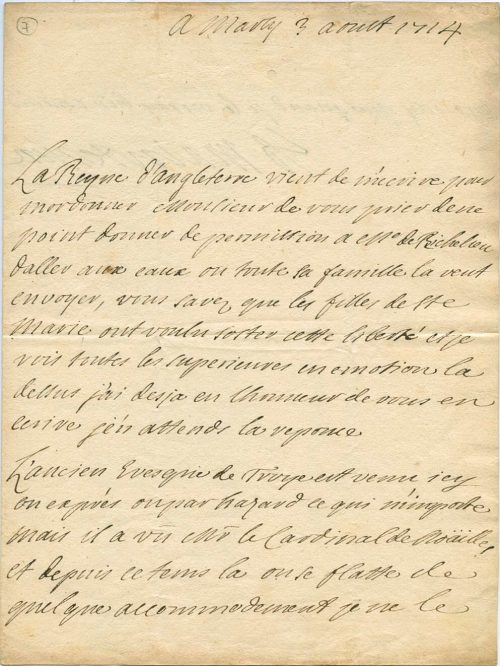 7
A Marly 3 aoust 1714
La Reyne d'angleterre vient de m'ecrire pour
m'ordonner Monsieur de vous prier de ne
point donner de permission a Mlle de Richelieu
d'aller aux eaux ou toute sa famille la veut
envoyer, vous savez que les filles de Ste
Marie ont voulu s'oster cette liberté et je
vois toutes les superieures en emotion la
dessus j'ai desja eu l'honneur de vous en
ecrire j'en attends la reponce
L'ancien Evesque de Troye est venu icy
ou exprés ou par hazard ce qui n'importe
mais il a vu Mr le Cardinal de Noäilles
et depuis ce tems la on se flatte de
quelque accommodement je ne le